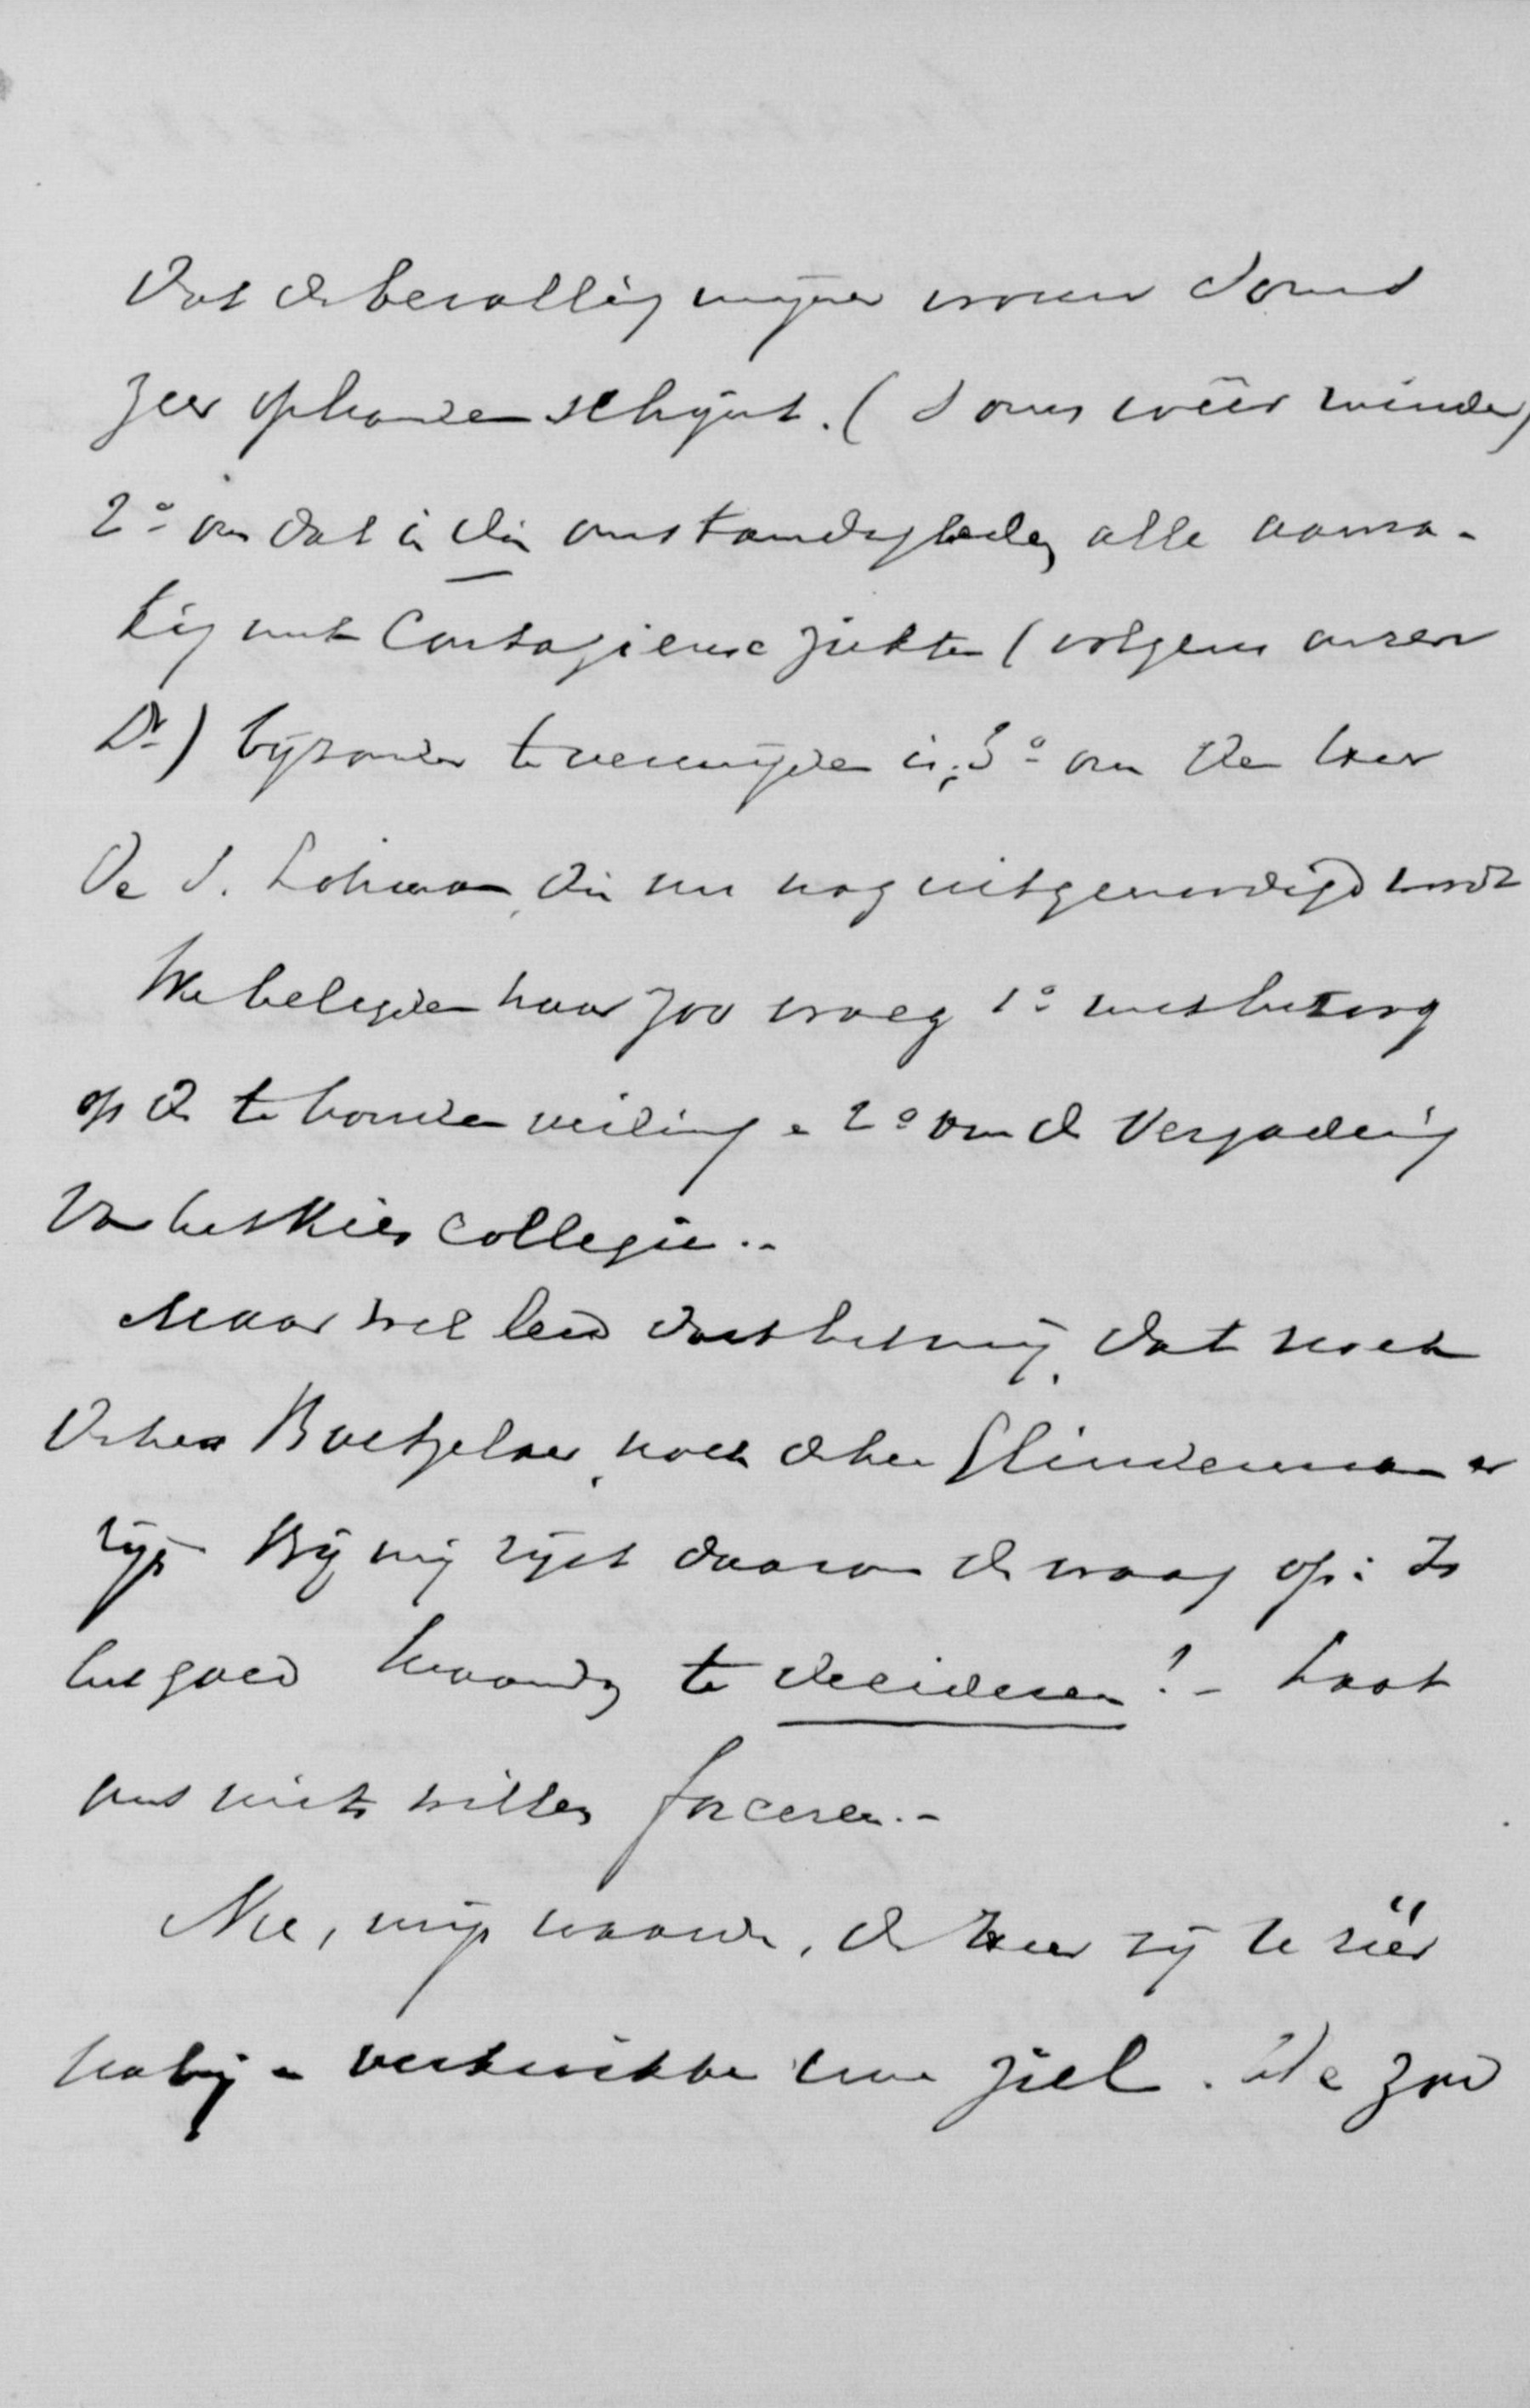 dat de bevalling mijner vrouw soms
zeer ophanden schijnt. (soms weêr minder)
2° omdat in die omstandigheden alle aanra-
king met contagieuse ziekten (volgens onzen
Dr) byzonder te vermijden is; 3° om den heer
De S. Lohman, die nu nog uitgenoodigd wordt
We belegden haar zoo vroeg 1° met het oog
op de te houden veiling en 2° om de Vergadering
van het Kiescollegie.-
Maar wel leid doet het mij, dat noch
de heer Boetzelaer, noch de heer Glinderman er
zijn. Bij mij rijst daarom de vraag op: Is
het goed Maandag te decideeren? - Laat
ons niets willen forceeren.-
Nu, mijn waarde, de Heer zij U zéér
nabij en verkwikke Uwe ziel. We zou